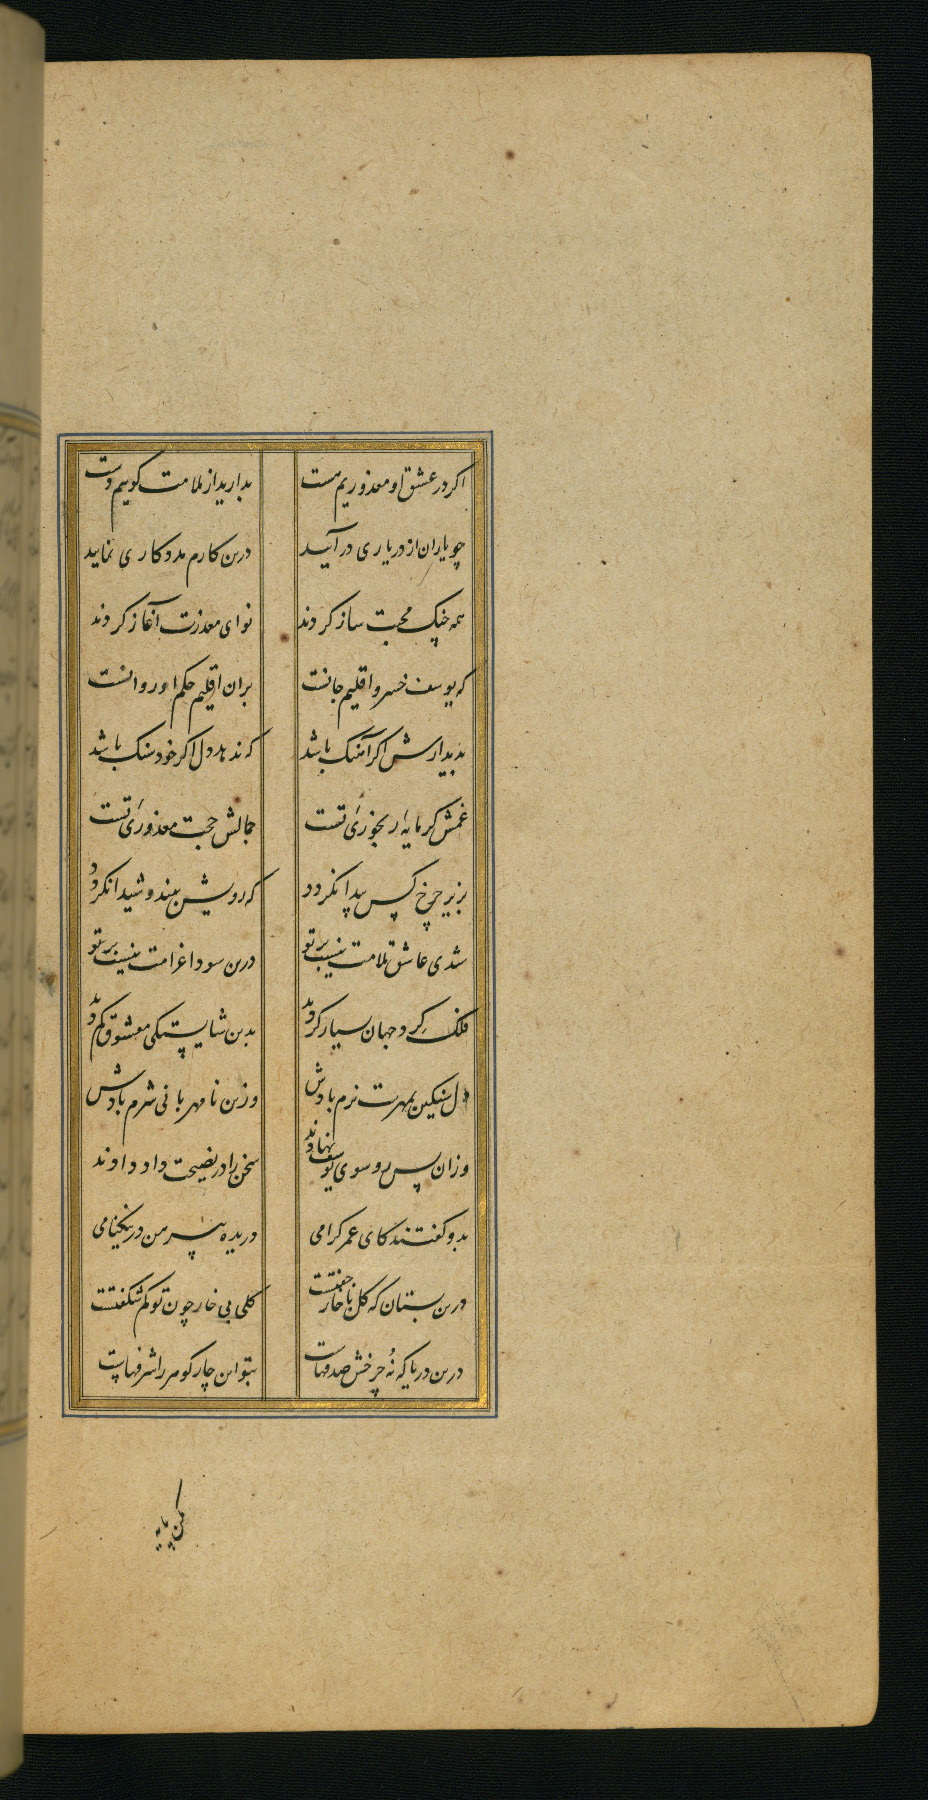 اکر در عشق او معذوریم هست بدارید از ملامت کوییم دست
چو یاران از در یاری در آیید درین کارم مددکاری نمایید
همه چنک محبت ساز کردند نوای معذرت آغاز کردند
که یوسف خسرو اقلیم جانست بران اقلیم حکم او روانست
بدیدارش اکر آهنک باشد که ندهد دل اکر خود سنک باشد
غمش کر مایه رنجوری تست جمالش حجت معذوری تست
بزیر چرخ کس پیدا نکردد که رویش بیند و شیدا نکردد
شدی عاشق ملامت نیست بر تو درین سودا غرامت نیست بر تو
فلک کرد جهان بسیار کردید بدین شایستکی معشوق کم دید
دل سنکین بمهرت نرم بادش وزین نامهربانی شرم بادش
وزان پس رو سوی یوسف نهادند سخن را در نصیحت داد دادند
بدو کفتند کای عمر کرامی دریده پیرهن در نیکنامی
درین بستان که کل با خار جفتست کلی بی خار چون تو کم شکفتست
درین دریا که نه چرخش صدفهاست بتو این چار کوهر را شرفهاست
مکن پایه